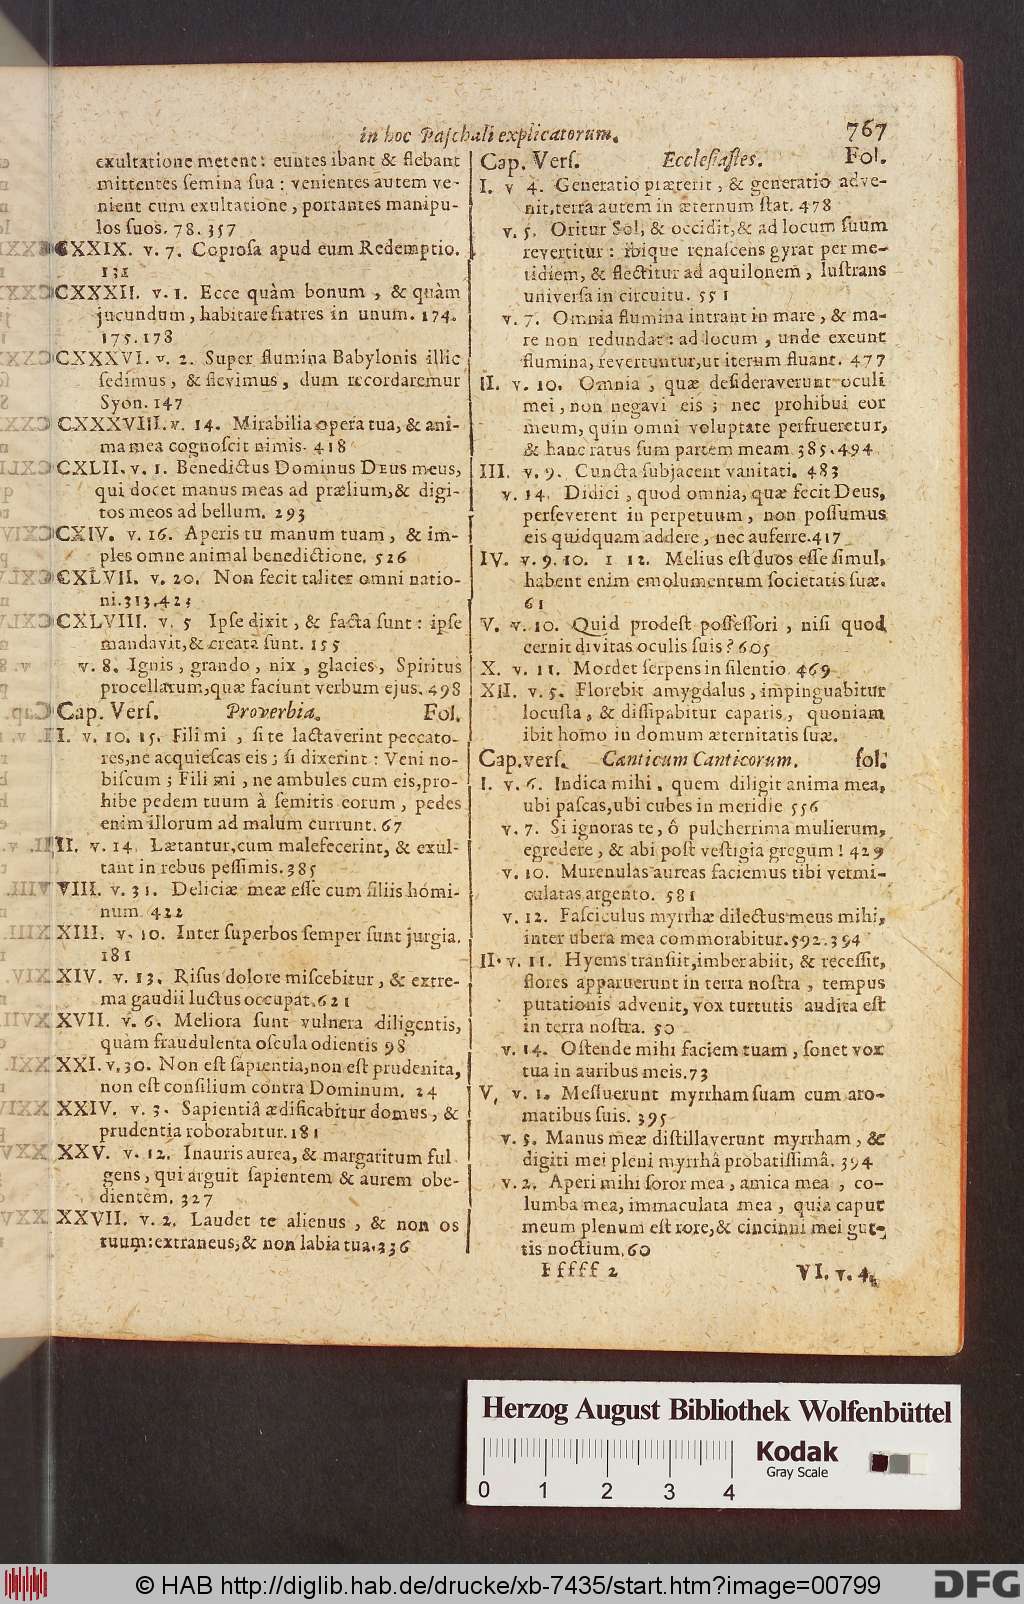 in hoc Paſchali explicatorum. 767
exultatione metent: euntes ibant & flebant
mittentes ſemina ſua: venientes autem ve-
nient cum exultatione, portantes manipu-
los ſuos. 78. 357
CXXIX. v. 7. Copioſa apud eum Redemptio.
131
CXXXII. v. 1. Ecce quàm bonum, & quàm
jucundum, habitare fratres in unum. 174.
175. 178
CXXXVI. v. 2. Super flumina Babylonis illic
ſedimus, & flevimus, dum recordaremur
Syon. 147
CXXXVIII. v. 14. Mirabilia opera tua, & ani-
ma mea cognoſcit nimis. 418
CXLII. v. 1. Benedictus Dominus DEUS meus,
qui docet manus meas ad prælium, & digi-
tos meos ad bellum. 293
CXIV. v. 16. Aperis tu manum tuam, & im-
ples omne animal benedictione. 526
CXLVII. v. 20. Non fecit taliter omni natio-
ni. 313. 423
CXLVIII. v. 5 Ipſe dixit, & facta ſunt: ipſe
mandavit, & creata ſunt. 155
v. 8. Ignis, grando, nix, glacies, Spiritus
procellarum, quæ faciunt verbum ejus. 498
Cap. Verſ. Proverbia. Fol.
I. v. 10. 15. Fili mi, ſi te lactaverint peccato-
res, ne acquieſcas eis; ſi dixerint: Veni no-
biſcum; Fili mi, ne ambules cum eis, pro-
hibe pedem tuum â ſemitis eorum, pedes
enim illorum ad malum currunt. 67
II. v. 14. Lætantur, cum malefecerint, & exul-
tant in rebus peſſimis. 385
VIII. v. 31. Deliciæ meæ eſſe cum filiis homi-
num. 422
XIII. v. 10. Inter ſuperbos ſemper ſunt jurgia.
181
XIV. v. 13. Riſus dolore miſcebitur, & extre-
ma gaudii luctus occupat. 621
XVII. v. 6. Meliora ſunt vulnera diligentis,
quàm fraudulenta oſcula odientis 98
XXI. v. 30. Non eſt ſapientia, non eſt prudenita,
non eſt conſilium contra Dominum. 24
XXIV. v. 3. Sapientiâ ædificabitur domus, &
prudentia roborabitur. 181
XXV. v. 12. Inauris aurea, & margaritum ful
gens, qui arguit ſapientem & aurem obe-
dientem. 327
XXVII. v. 2. Laudet te alienus, & non os
tuum: extraneus, & non labia tua. 336
Cap. Verſ. Eccleſiaſtes. Fol.
I. v 4. Generatio præterit, & generatio adve-
nit, terra autem in æternum ſtat. 478
v. 5. Oritur Sol, & occidit, & ad locum ſuum
revertitur: ibique renaſcens gyrat per me-
ridiem, & flectitur ad aquilonem, luſtrans
univerſa in circuitu. 551
v. 7. Omnia flumina intrant in mare, & ma-
re non redundat: ad locum, unde exeunt
flumina, revertuntur, ut iterum fluant. 477
II. v. 10. Omnia, quæ deſideraverunt oculi
mei, non negavi eis; nec prohibui cor
meum, quin omni voluptate perfrueretur,
& hanc ratus ſum partem meam. 385. 494
III. v. 9. Cuncta ſubjacent vanitati. 483
v. 14. Didici, quod omnia, quæ fecit Deus,
perſeverent in perpetuum, non poſſumus
eis quidquam addere, nec auferre. 417
IV. v. 9. 10. 1 12. Melius eſt duos eſſe ſimul,
habent enim emolumentum ſocietatis ſuæ.
61
V. v. 10. Quid prodeſt poſſeſſori, niſi quod
cernit divitas oculis ſuis? 605
X. v. 11. Mordet ſerpens in ſilentio 469
XII. v. 5. Florebit amygdalus, impinguabitur
locuſta, & diſſipabitur caparis, quoniam
ibit homo in domum æternitatis ſuæ.
Cap. verſ. Canticum Canticorum. fol.
I. v. 6. Indica mihi, quem diligit anima mea,
ubi paſcas, ubi cubes in meridie 556
v. 7. Si ignoras te, ô pulcherrima mulierum,
egredere, & abi poſt veſtigia gregum! 429
v. 10. Murenulas aureas faciemus tibi vermi-
culatas argento. 581
v. 12. Faſciculus myrrhæ dilectus meus mihi,
inter ubera mea commorabitur. 592. 394
II. v. 11. Hyems tranſiit, imber abiit, & receſſit,
flores apparuerunt in terra noſtra, tempus
putationis advenit, vox turtutis audita eſt
in terra noſtra. 50
v. 14. Oſtende mihi faciem tuam, ſonet vox
tua in auribus meis. 73
V, v. 1. Meſſuerunt myrrham ſuam cum aro-
matibus ſuis. 395
v. 5. Manus meæ diſtillaverunt myrrham, &
digiti mei pleni myrrhâ probatiſſimâ. 394
v. 2. Aperi mihi ſoror mea, amica mea, co-
lumba mea, immaculata mea, quia caput
meum plenum eſt rore, & cincinni mei gut-
tis noctium. 60
Fffff 2 VI. v. 4.
Herzog August Bibliothek Wolfenbüttel
Kodak
Gray Scale
0 1 2 3 4
© HAB http://diglib.hab.de/drucke/xb-7435/start.htm?image=00799
DFG